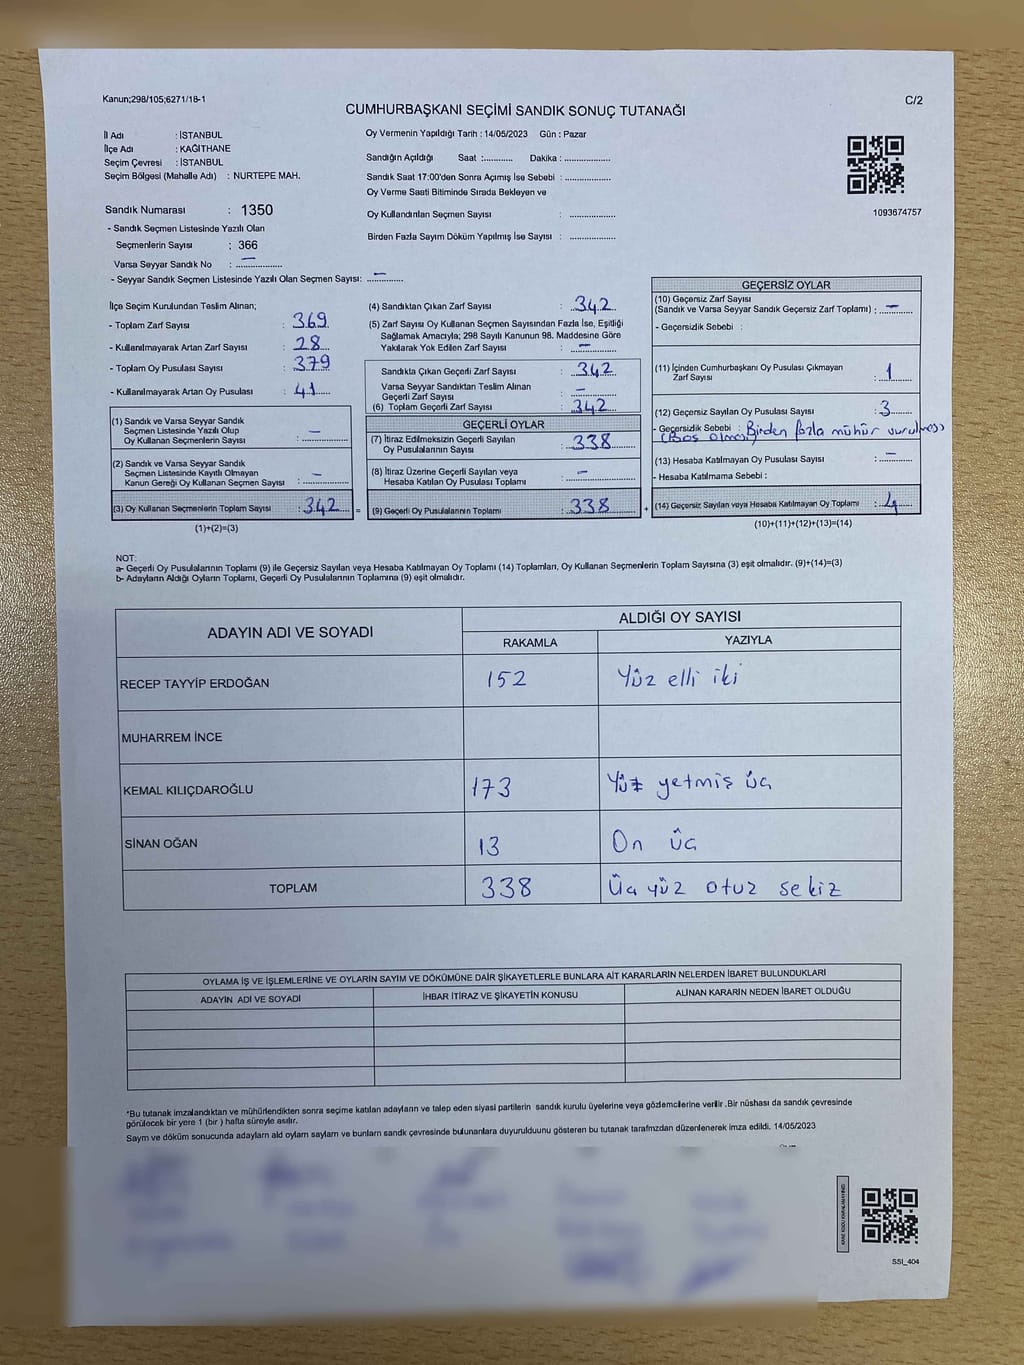 Kanun;298/105;6271/18-1
C/2
CUMHURBAŞKANI SEÇİMİ SANDIK SONUÇ TUTANAĞI
İl Adı : İSTANBUL
İlçe Adı : KAĞITHANE
Seçim Çevresi : İSTANBUL
Seçim Bölgesi (Mahalle Adı) : NURTEPE MAH.
Sandık Numarası : 1350
- Sandık Seçmen Listesinde Yazılı Olan
Seçmenlerin Sayısı : 366
Varsa Seyyar Sandık No : —
- Seyyar Sandık Seçmen Listesinde Yazılı Olan Seçmen Sayısı: —
Oy Vermenin Yapıldığı Tarih : 14/05/2023 Gün : Pazar
Sandığın Açıldığı Saat :............ Dakika : ..................
Sandık Saat 17:00'den Sonra Açımış İse Sebebi : ..................
Oy Verme Saati Bitiminde Sırada Bekleyen ve
Oy Kullandırılan Seçmen Sayısı : ..................
Birden Fazla Sayım Döküm Yapılmış İse Sayısı : ..................
1093674757
İlçe Seçim Kurulundan Teslim Alınan;
- Toplam Zarf Sayısı : 369
- Kullanılmayarak Artan Zarf Sayısı : 28
- Toplam Oy Pusulası Sayısı : 379
- Kullanılmayarak Artan Oy Pusulası : 41
(1) Sandık ve Varsa Seyyar Sandık
Seçmen Listesinde Yazılı Olup
Oy Kullanan Seçmenlerin Sayısı : —
(2) Sandık ve Varsa Seyyar Sandık
Seçmen Listesinde Kayıtlı Olmayan
Kanun Gereği Oy Kullanan Seçmen Sayısı : —
(3) Oy Kullanan Seçmenlerin Toplam Sayısı : 342 =
(1)+(2)=(3)
(4) Sandıktan Çıkan Zarf Sayısı : 342
(5) Zarf Sayısı Oy Kullanan Seçmen Sayısından Fazla İse, Eşitliği
Sağlamak Amacıyla; 298 Sayılı Kanunun 98. Maddesine Göre
Yakılarak Yok Edilen Zarf Sayısı : —
Sandıkta Çıkan Geçerli Zarf Sayısı : 342
Varsa Seyyar Sandıktan Teslim Alınan
Geçerli Zarf Sayısı : —
(6) Toplam Geçerli Zarf Sayısı : 342
GEÇERLİ OYLAR
(7) İtiraz Edilmeksizin Geçerli Sayılan
Oy Pusulalarının Sayısı : 338
(8) İtiraz Üzerine Geçerli Sayılan veya
Hesaba Katılan Oy Pusulası Toplamı : —
(9) Geçerli Oy Pusulalarının Toplamı : 338 +
GEÇERSİZ OYLAR
(10) Geçersiz Zarf Sayısı
(Sandık ve Varsa Seyyar Sandık Geçersiz Zarf Toplamı) : —
- Geçersizlik Sebebi :
(11) İçinden Cumhurbaşkanı Oy Pusulası Çıkmayan
Zarf Sayısı : 1
(12) Geçersiz Sayılan Oy Pusulası Sayısı : 3
- Geçersizlik Sebebi : Birden fazla mühür vurulması
(Boş olması)
(13) Hesaba Katılmayan Oy Pusulası Sayısı : —
- Hesaba Katılmama Sebebi :
(14) Geçersiz Sayılan veya Hesaba Katılmayan Oy Toplamı : 4
(10)+(11)+(12)+(13)=(14)
NOT:
a- Geçerli Oy Pusulalarının Toplamı (9) ile Geçersiz Sayılan veya Hesaba Katılmayan Oy Toplamı (14) Toplamları, Oy Kullanan Seçmenlerin Toplam Sayısına (3) eşit olmalıdır. (9)+(14)=(3)
b- Adayların Aldığı Oyların Toplamı, Geçerli Oy Pusulalarının Toplamına (9) eşit olmalıdır.
ADAYIN ADI VE SOYADI
ALDIĞI OY SAYISI
RAKAMLA YAZIYLA
RECEP TAYYİP ERDOĞAN 152 Yüz elli iki
MUHARREM İNCE
KEMAL KILIÇDAROĞLU 173 Yüz yetmiş üç
SİNAN OĞAN 13 On üç
TOPLAM 338 Üç yüz otuz sekiz
OYLAMA İŞ VE İŞLEMLERİNE VE OYLARIN SAYIM VE DÖKÜMÜNE DAİR ŞİKAYETLERLE BUNLARA AİT KARARLARIN NELERDEN İBARET BULUNDUKLARI
ADAYIN ADI VE SOYADI İHBAR İTİRAZ VE ŞİKAYETİN KONUSU ALINAN KARARIN NEDEN İBARET OLDUĞU
*Bu tutanak imzalandıktan ve mühürlendikten sonra seçime katılan adayların ve talep eden siyasi partilerin sandık kurulu üyelerine veya gözlemcilerine verilir .Bir nüshası da sandık çevresinde
görülecek bir yere 1 (bir ) hafta süreyle asılır.
Sayım ve döküm sonucunda adayların ald oyların sayları ve bunların sandk çevresinde bulunanlara duyurulduunu gösteren bu tutanak tarafmzdan düzenlenerek imza edildi. 14/05/2023
SSİ_404